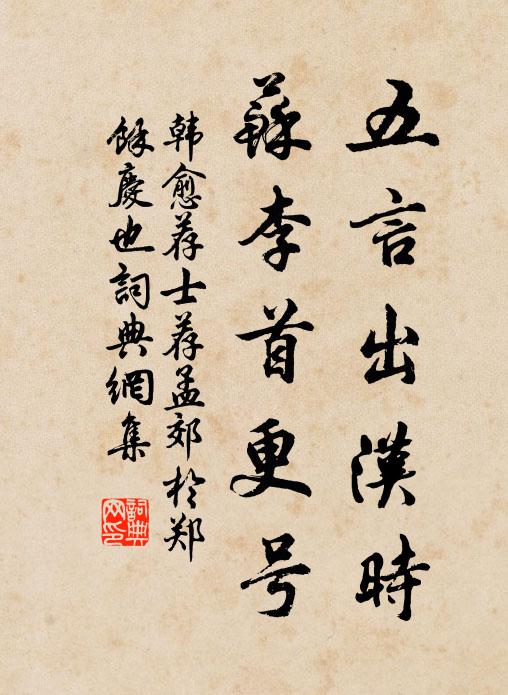 五言出漢時
蘇李首更号
韩愈荐士荐孟郊於郑
餘慶也詞典網集
詞典
网印